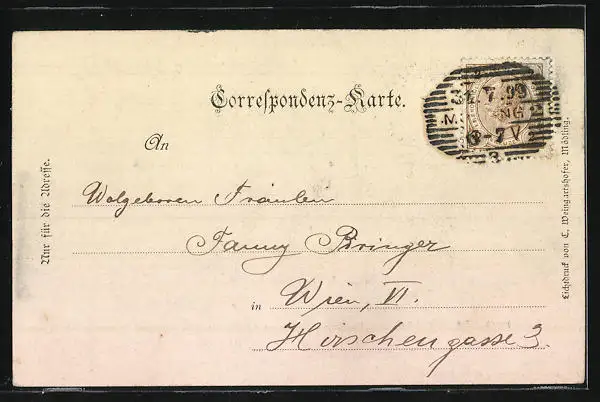 Correspondenz-Karte.
An
Wolgeboren Fräulein
Fanny Bringer
in Wien, VI.
Hirschengasse 3.
Nur für die Adresse.
Lichtdruck von C. Weingartshofer, Mödling.
7. 99
NG
6-7 V
3